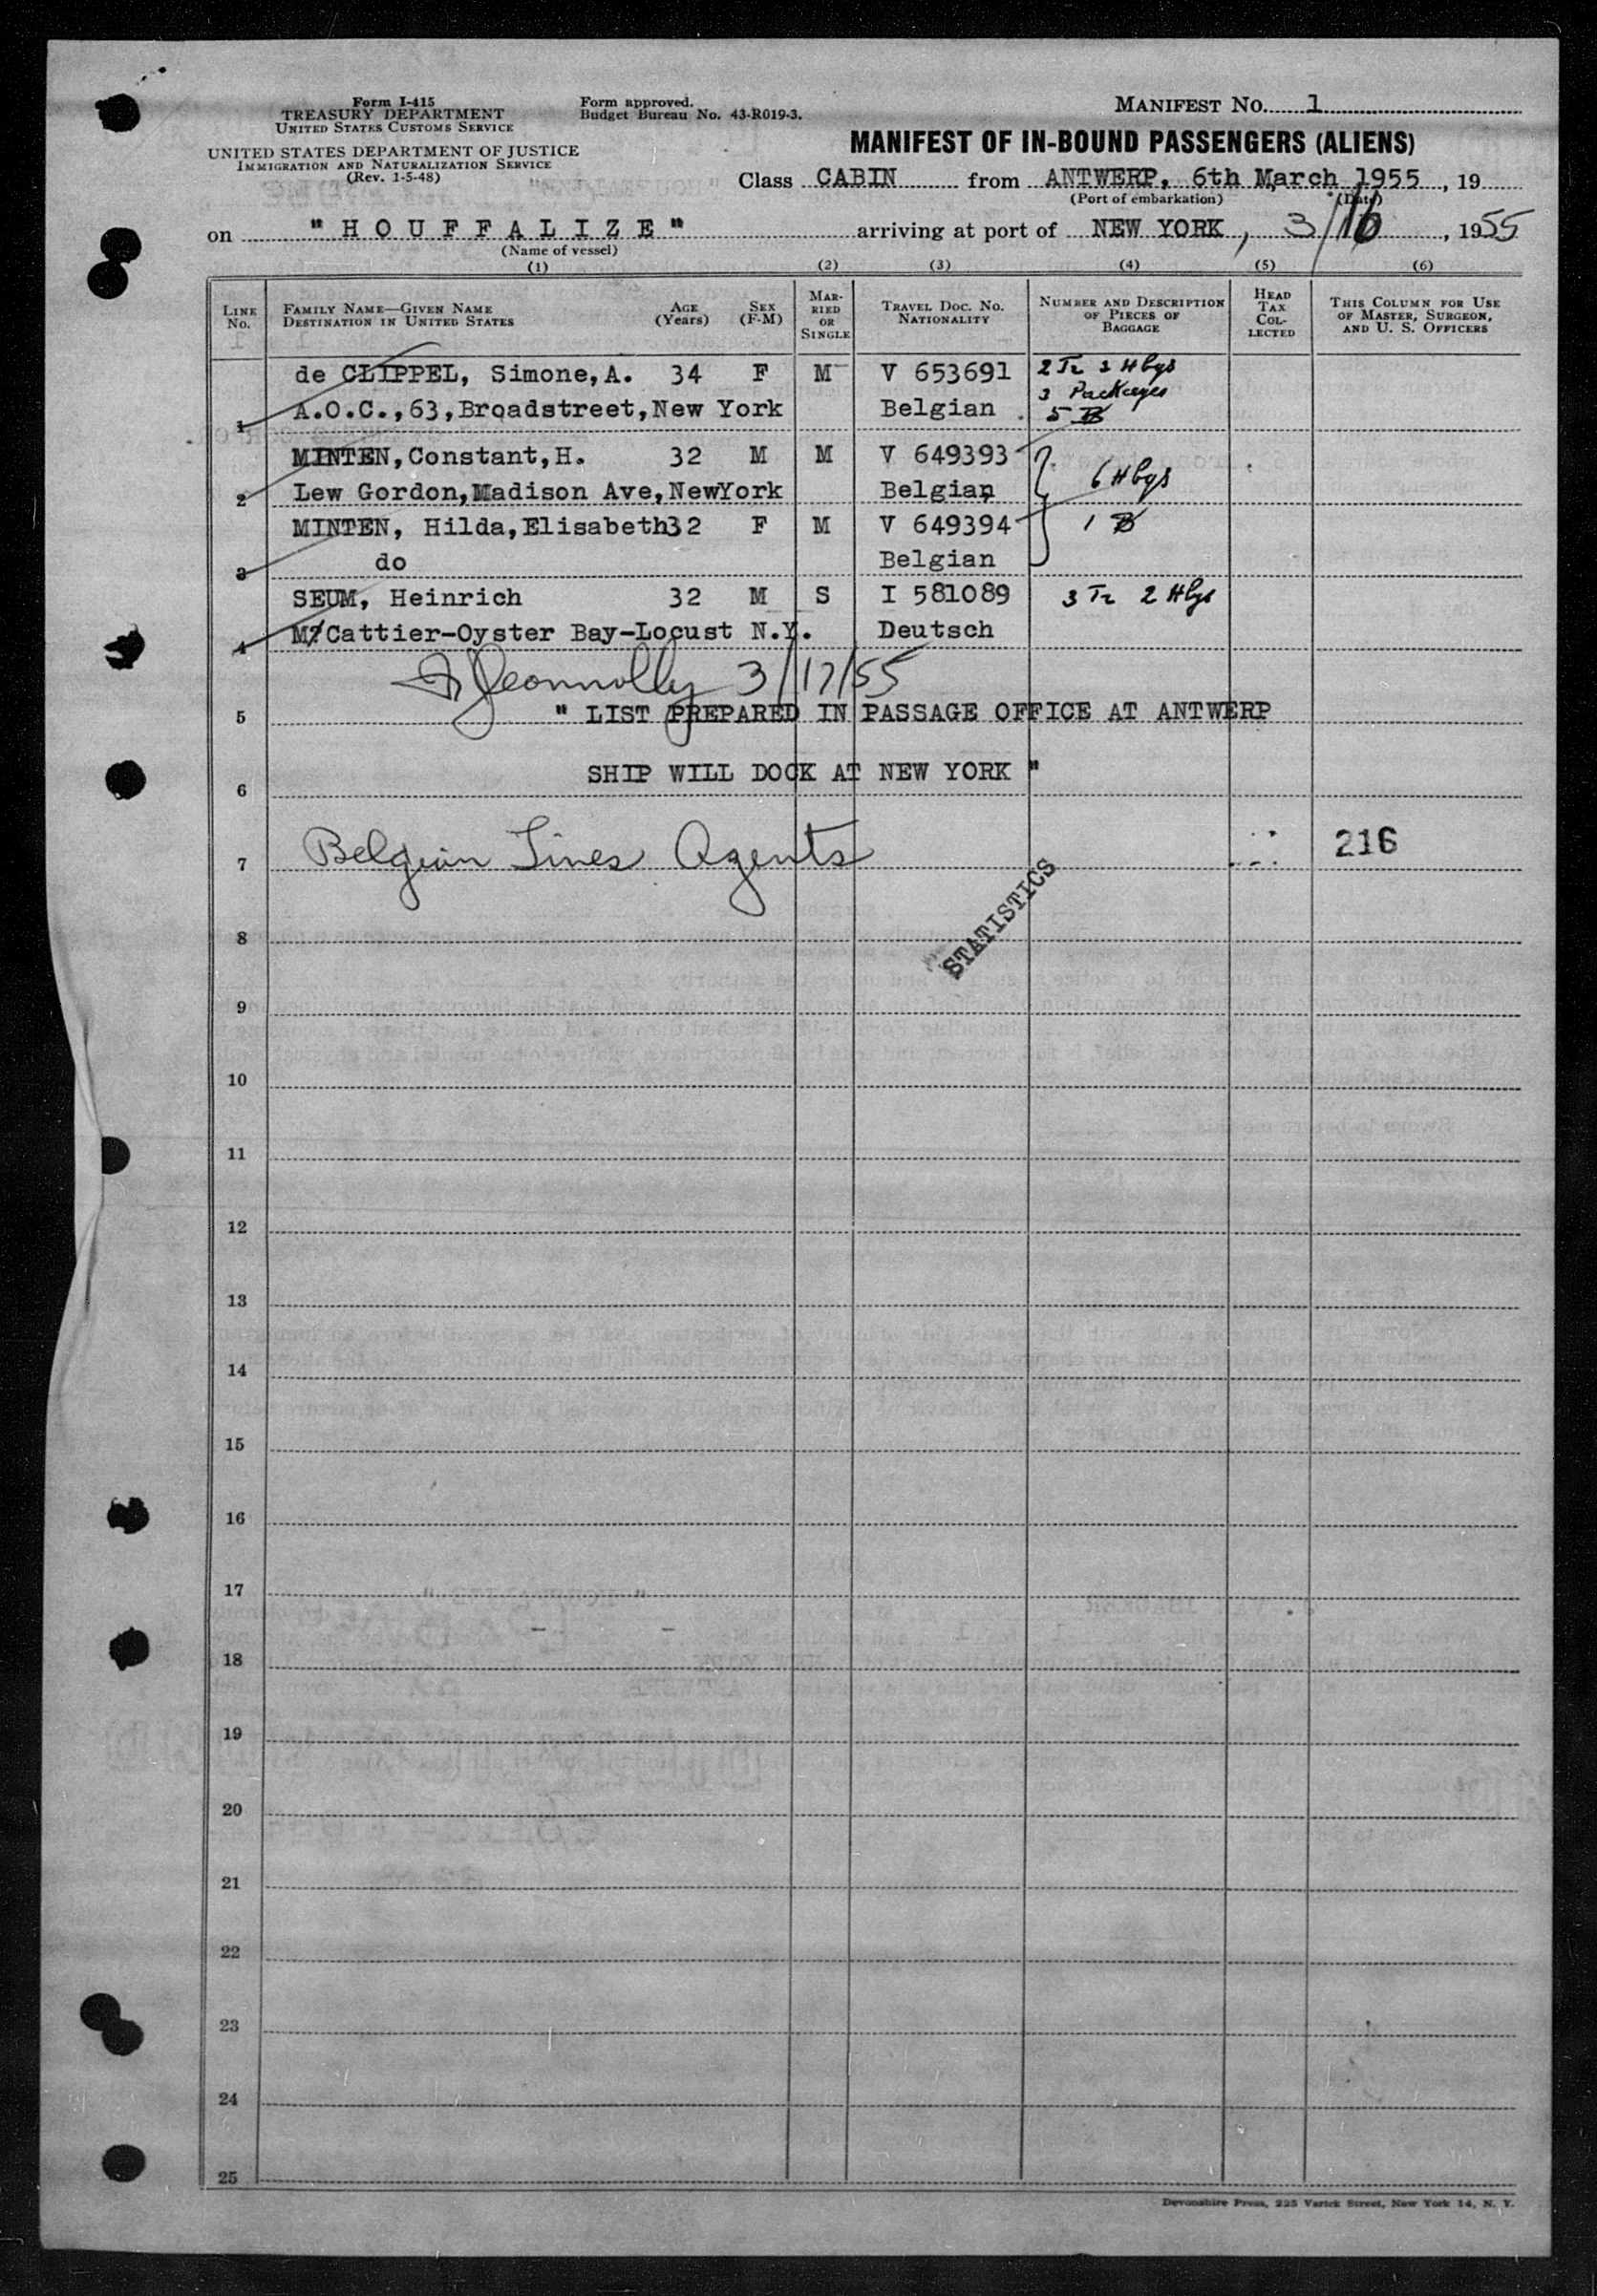 Form I-415
TREASURY DEPARTMENT
UNITED STATES CUSTOMS SERVICE
UNITED STATES DEPARTMENT OF JUSTICE
IMMIGRATION AND NATURALIZATION SERVICE
(Rev. 1-5-48)
Form approved.
Budget Bureau No. 43-R019-3.
MANIFEST NO. 1
MANIFEST OF IN-BOUND PASSENGERS (ALIENS)
Class CABIN from ANTWERP, 6th March 1955, 19
(Port of embarkation) (Date)
on "HOUFFALIZE" arriving at port of NEW YORK, 3/16, 1955
(Name of vessel)
(1) (2) (3) (4) (5) (6)
LINE NO. FAMILY NAME—GIVEN NAME DESTINATION IN UNITED STATES AGE (Years) SEX (F-M) MARRIED OR SINGLE TRAVEL DOC. NO. NATIONALITY NUMBER AND DESCRIPTION OF PIECES OF BAGGAGE HEAD TAX COLLECTED THIS COLUMN FOR USE OF MASTER, SURGEON, AND U. S. OFFICERS
de CLIPPEL, Simone, A. 34 F M V 653691 2 Tr 2 Hbgs
3 Packages
1 A.O.C., 63, Broadstreet, New York Belgian 5 B
MINTEN, Constant, H. 32 M M V 649393 6 Hbgs
2 Lew Gordon, Madison Ave, NewYork Belgian
MINTEN, Hilda, Elisabeth 32 F M V 649394 1 B
3 do Belgian
SEUM, Heinrich 32 M S I 581089 3 Tr 2 Hbgs
4 M/Cattier-Oyster Bay-Locust N.Y. Deutsch
Connolly 3/17/55
5 " LIST PREPARED IN PASSAGE OFFICE AT ANTWERP
6 SHIP WILL DOCK AT NEW YORK "
7 Belgian Lines Agents 216
STATISTICS
8
9
10
11
12
13
14
15
16
17
18
19
20
21
22
23
24
25
Devonshire Press, 225 Varick Street, New York 14, N. Y.